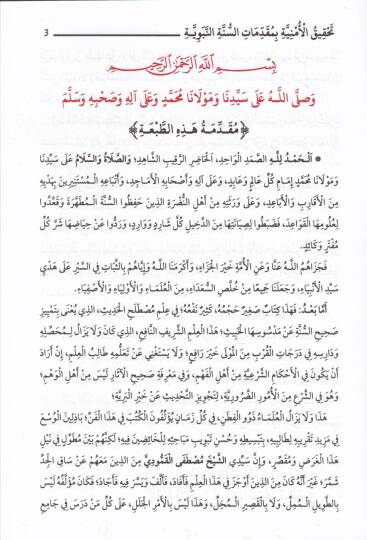 تَحْقِيقُ الْأُمْنِيَّةِ بِمُقَدِّمَاتِ السُّنَّةِ النَّبَوِيَّةِ 3
بِسْمِ اللَّهِ الرَّحْمَٰنِ الرَّحِيمِ
وَصَلَّى اللَّهُ عَلَى سَيِّدِنَا وَمَوْلَانَا مُحَمَّدٍ وَعَلَى آلِهِ وَصَحْبِهِ وَسَلَّمَ
﴿مُقَدِّمَةُ هَذِهِ الطَّبْعَةِ﴾
* اَلْحَمْدُ لِلَّهِ الصَّمَدِ الْوَاحِدِ، الْحَاضِرِ الرَّقِيبِ الشَّاهِدِ؛ وَالصَّلَاةُ وَالسَّلَامُ عَلَى سَيِّدِنَا
وَمَوْلَانَا مُحَمَّدٍ إِمَامِ كُلِّ عَالِمٍ وَعَابِدٍ، وَعَلَى آلِهِ وَأَصْحَابِهِ الْأَمَاجِدِ، وَأَتْبَاعِهِ الْمُسْتَنِيرِينَ بِهَدْيِهِ
مِنَ الْأَقَارِبِ وَالْأَبَاعِدِ، وَعَلَى وَرَثَتِهِ مِنْ أَهْلِ النُّصْرَةِ الَّذِينَ حَفِظُوا السُّنَّةَ الْمُطَهَّرَةَ وَقَعَّدُوا
لِعُلُومِهَا الْقَوَاعِدَ، فَضَبَطُوا لِصِيَانَتِهَا مِنَ الدَّخِيلِ كُلَّ شَارِدٍ وَوَارِدٍ، وَرَدُّوا عَنْ حِيَاضِهَا شَرَّ كُلِّ
مُفْتَرٍ وَكَائِدٍ.
فَجَزَاهُمُ اللَّهُ عَنَّا وَعَنِ الْأُمَّةِ خَيْرَ الْجَزَاءِ، وَأَكْرَمَنَا اللَّهُ وَإِيَّاهُمْ بِالثَّبَاتِ فِي السَّيْرِ عَلَى هَدْيِ
سَيِّدِ الْأَنْبِيَاءِ، وَجَعَلَنَا جَمِيعًا مِنْ خُلَّصِ السُّعَدَاءِ، مِنَ الْعُلَمَاءِ وَالْأَوْلِيَاءِ وَالْأَصْفِيَاءِ.
أَمَّا بَعْدُ: فَهَذَا كِتَابٌ صَغِيرٌ حَجْمُهُ، كَثِيرٌ نَفْعُهُ؛ فِي عِلْمِ مُصْطَلَحِ الْحَدِيثِ، الَّذِي يُعْنَى بِتَمْيِيزِ
صَحِيحِ السُّنَّةِ عَنْ مَدْسُوسِهَا الْخَبِيثِ؛ هَذَا الْعِلْمُ الشَّرِيفُ النَّافِعُ، الَّذِي كَانَ وَلَا يَزَالُ لِمُحَصِّلِهِ
وَدَارِسِهِ فِي دَرَجَاتِ الْقُرْبِ مِنَ الْمَوْلَى خَيْرَ رَافِعٍ؛ وَلَا يَسْتَغْنِي عَنْ تَعَلُّمِهِ طَالِبُ الْعِلْمِ، إِنْ أَرَادَ
أَنْ يَكُونَ فِي الْأَحْكَامِ الشَّرْعِيَّةِ مِنْ أَهْلِ الْفَهْمِ، وَفِي مَعْرِفَةِ صَحِيحِ الْآثَارِ لَيْسَ مِنْ أَهْلِ الْوَهْمِ؛
وَهُوَ فِي الشَّرْعِ مِنَ الْأُمُورِ الضَّرُورِيَّةِ، لِتَجْوِيزِ التَّحْدِيثِ عَنْ خَيْرِ الْبَرِيَّةِ؛
هَذَا وَلَا يَزَالُ الْعُلَمَاءُ ذَوُو الْفِطَنِ، فِي كُلِّ زَمَانٍ يُؤَلِّفُونَ الْكُتُبَ فِي هَذَا الْفَنِّ؛ بَاذِلِينَ الْوُسْعَ
فِي مَزِيدِ تَقْرِيبِهِ لِطَالِبِيهِ، بِتَبْسِيطِهِ وَحُسْنِ تَبْوِيبِ مَبَاحِثِهِ لِلْخَائِضِينَ فِيهِ؛ لَكِنَّهُمْ بَيْنَ مُطَوِّلٍ فِي نَيْلِ
هَذَا الْغَرَضِ وَمُقَصِّرٍ، وَإِنَّ سَيِّدِي الشَّيْخَ مُصْطَفَى الْقَمُّودِيَّ مِنَ الَّذِينَ مَعَهُمْ عَنْ سَاقِ الْجِدِّ
شَمَّرَ؛ غَيْرَ أَنَّهُ كَانَ مِنَ الَّذِينَ أَوْجَزَ فِي هَذَا الْعِلْمِ فَأَفَادَ، فَأَلَّفَ وَيَسَّرَ فِيهِ فَأَجَادَ؛ فَكَانَ مُؤَلَّفُهُ لَيْسَ
بِالطَّوِيلِ الْمُمِلِّ، وَلَا بِالْقَصِيرِ الْمُخِلِّ، وَهَذَا لَيْسَ بِالْأَمْرِ الْجَلَلِ، عَلَى كُلِّ مَنْ دَرَسَ فِي جَامِعِ